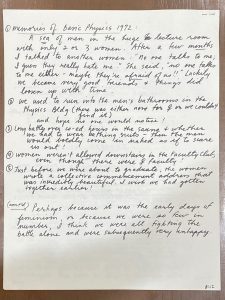 ① Memories of Basic Physics 1972:
A sea of men in the huge lecture room
with only 2 or 3 women. After a few months
I talked to another women: "No one talks to me,
I guess they really hate me." She said, "no one talks
to me either - maybe they're afraid of us!!" Luckily
we became very good friends & things did
loosen up with time.
② We used to run into the men's bathrooms in the
Physics Bldg (there was either none for ♀ or we couldn't
find it)
and hope no one would notice!
③ Long battles over co-ed hours in the sauna & whether
we had to wear bathing suits - then the men
would boldly come in naked as if to scare
us out!
④ Women weren't allowed downstairs in the Faculty Club,
even though there were ♀ faculty.
⑤ Just before we were about to graduate, the women
wrote a collective commencement address that
was incredibly beautiful. I wish we had gotten
together earlier!
Perhaps because it was the early days of
feminism, or because we were so few in
number, I think we were all fighting the
battle alone and were subsequently very unhappy.